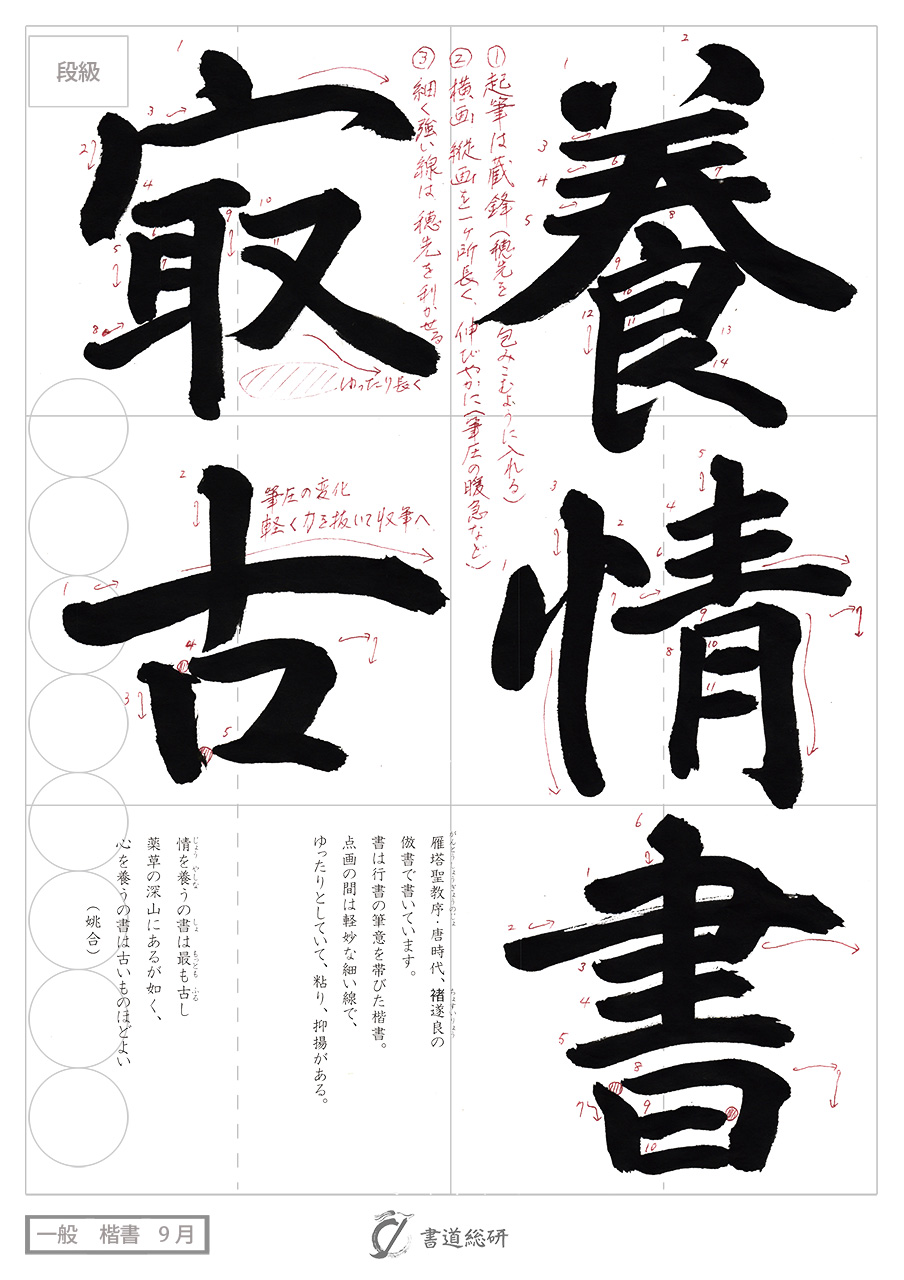 段級
養情書
冣古
①起筆は蔵鋒(穂先を包みこむように入れる)
②横画、縦画を一ヶ所長く、伸びやかに(筆圧の暖急など)
③細く強い線は穂先を利かせる
ゆったり長く
筆圧の変化
軽く力を抜いて収筆へ
雁塔聖教序・唐時代、褚遂良の
倣書で書いています。
書は行書の筆意を帯びた楷書。
点画の間は軽妙な細い線で、
ゆったりとしていて、粘り、抑揚がある。
情を養うの書は最も古し
薬草の深山にあるが如く、
心を養うの書は古いものほどよい
(姚合)
一般 楷書 9月
書道総研